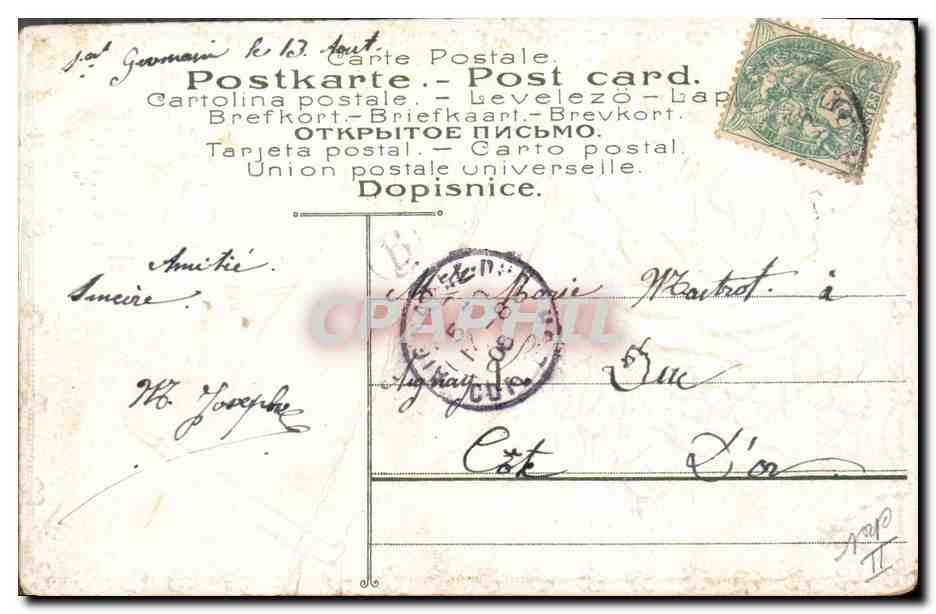 Sat Germain le 13 Aout.
Carte Postale.
Postkarte. - Post card.
Cartolina postale. - Levelező - Lap
Brefkort. - Briefkaart. - Brevkort.
ОТКРЫТОЕ ПИСЬМО.
Tarjeta postal. - Carto postal.
Union postale universelle.
Dopisnice.
Amitié.
Sincère.
M. Josephine
B
CPAPHIL
Marie Martrot. à
Aignay le Duc
Côte D'or